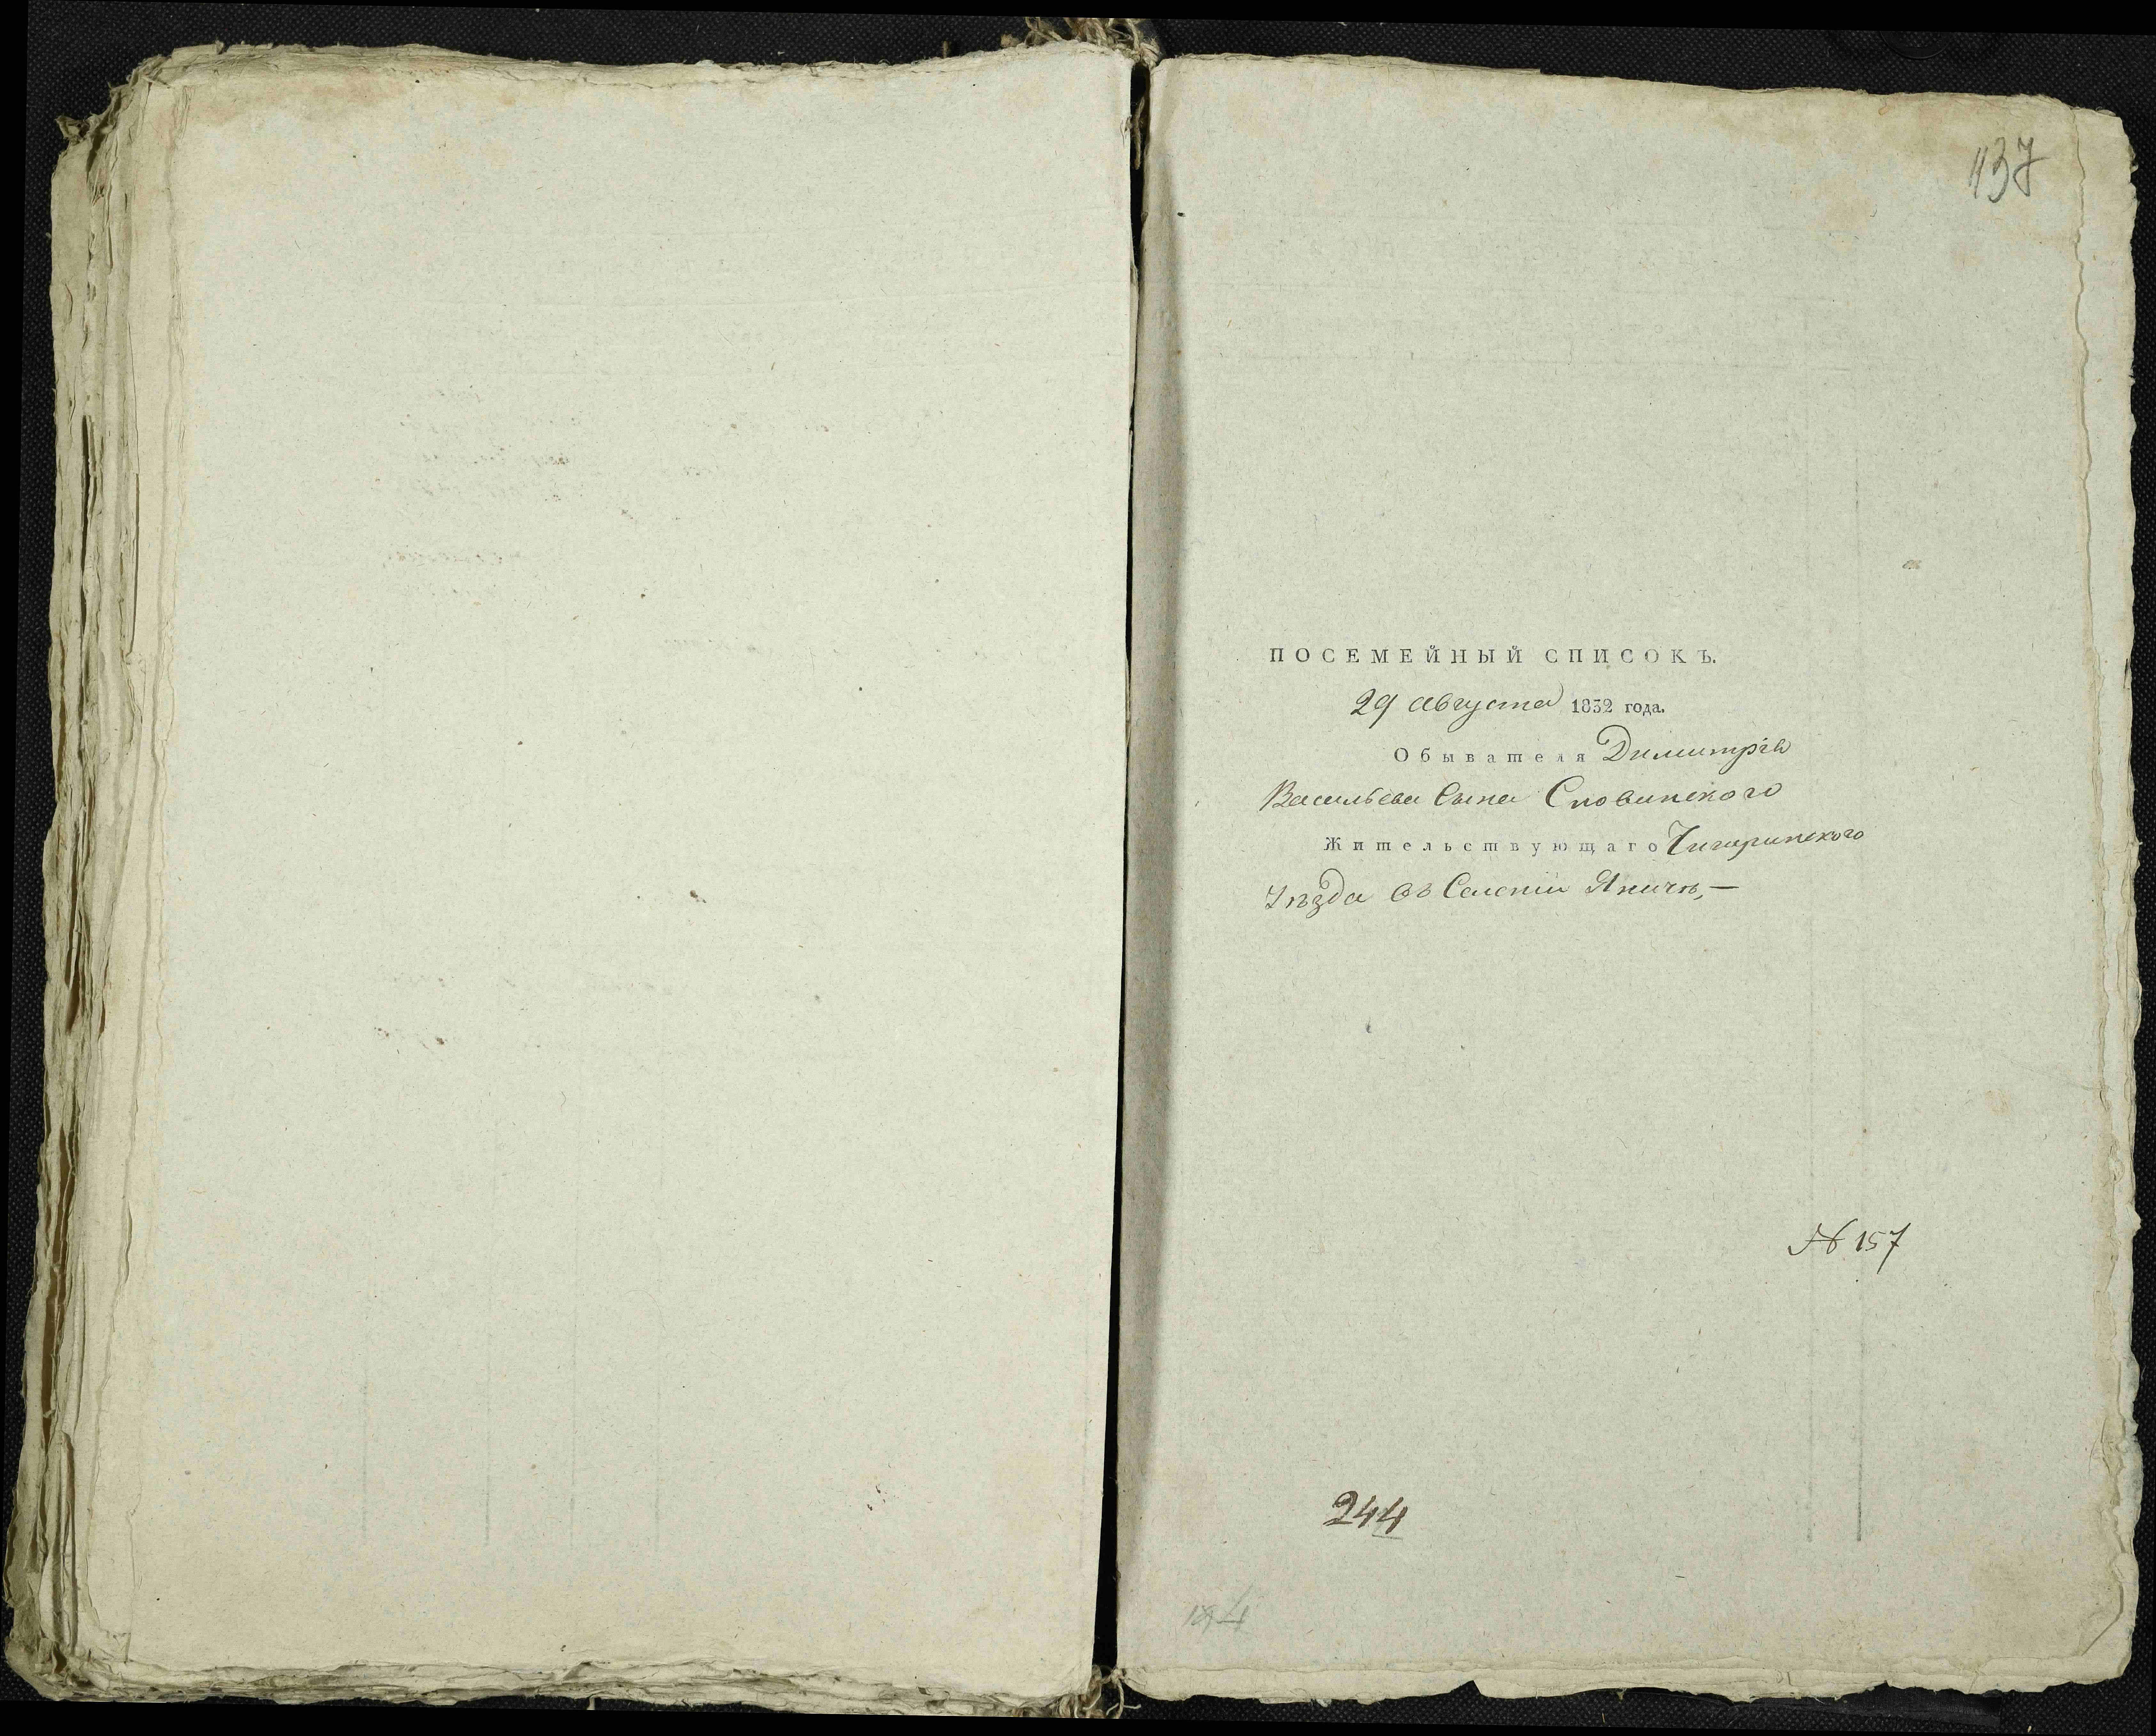 137
ПОСЕМЕЙНЫЙ СПИСОКЪ.
29 августа 1832 года.
Обывателя Димитрія
Васильева Сына Сновинского
Жительствующаго Чигиринского
Уѣзда въ Селеніи Яничѣ,—
№ 157
244